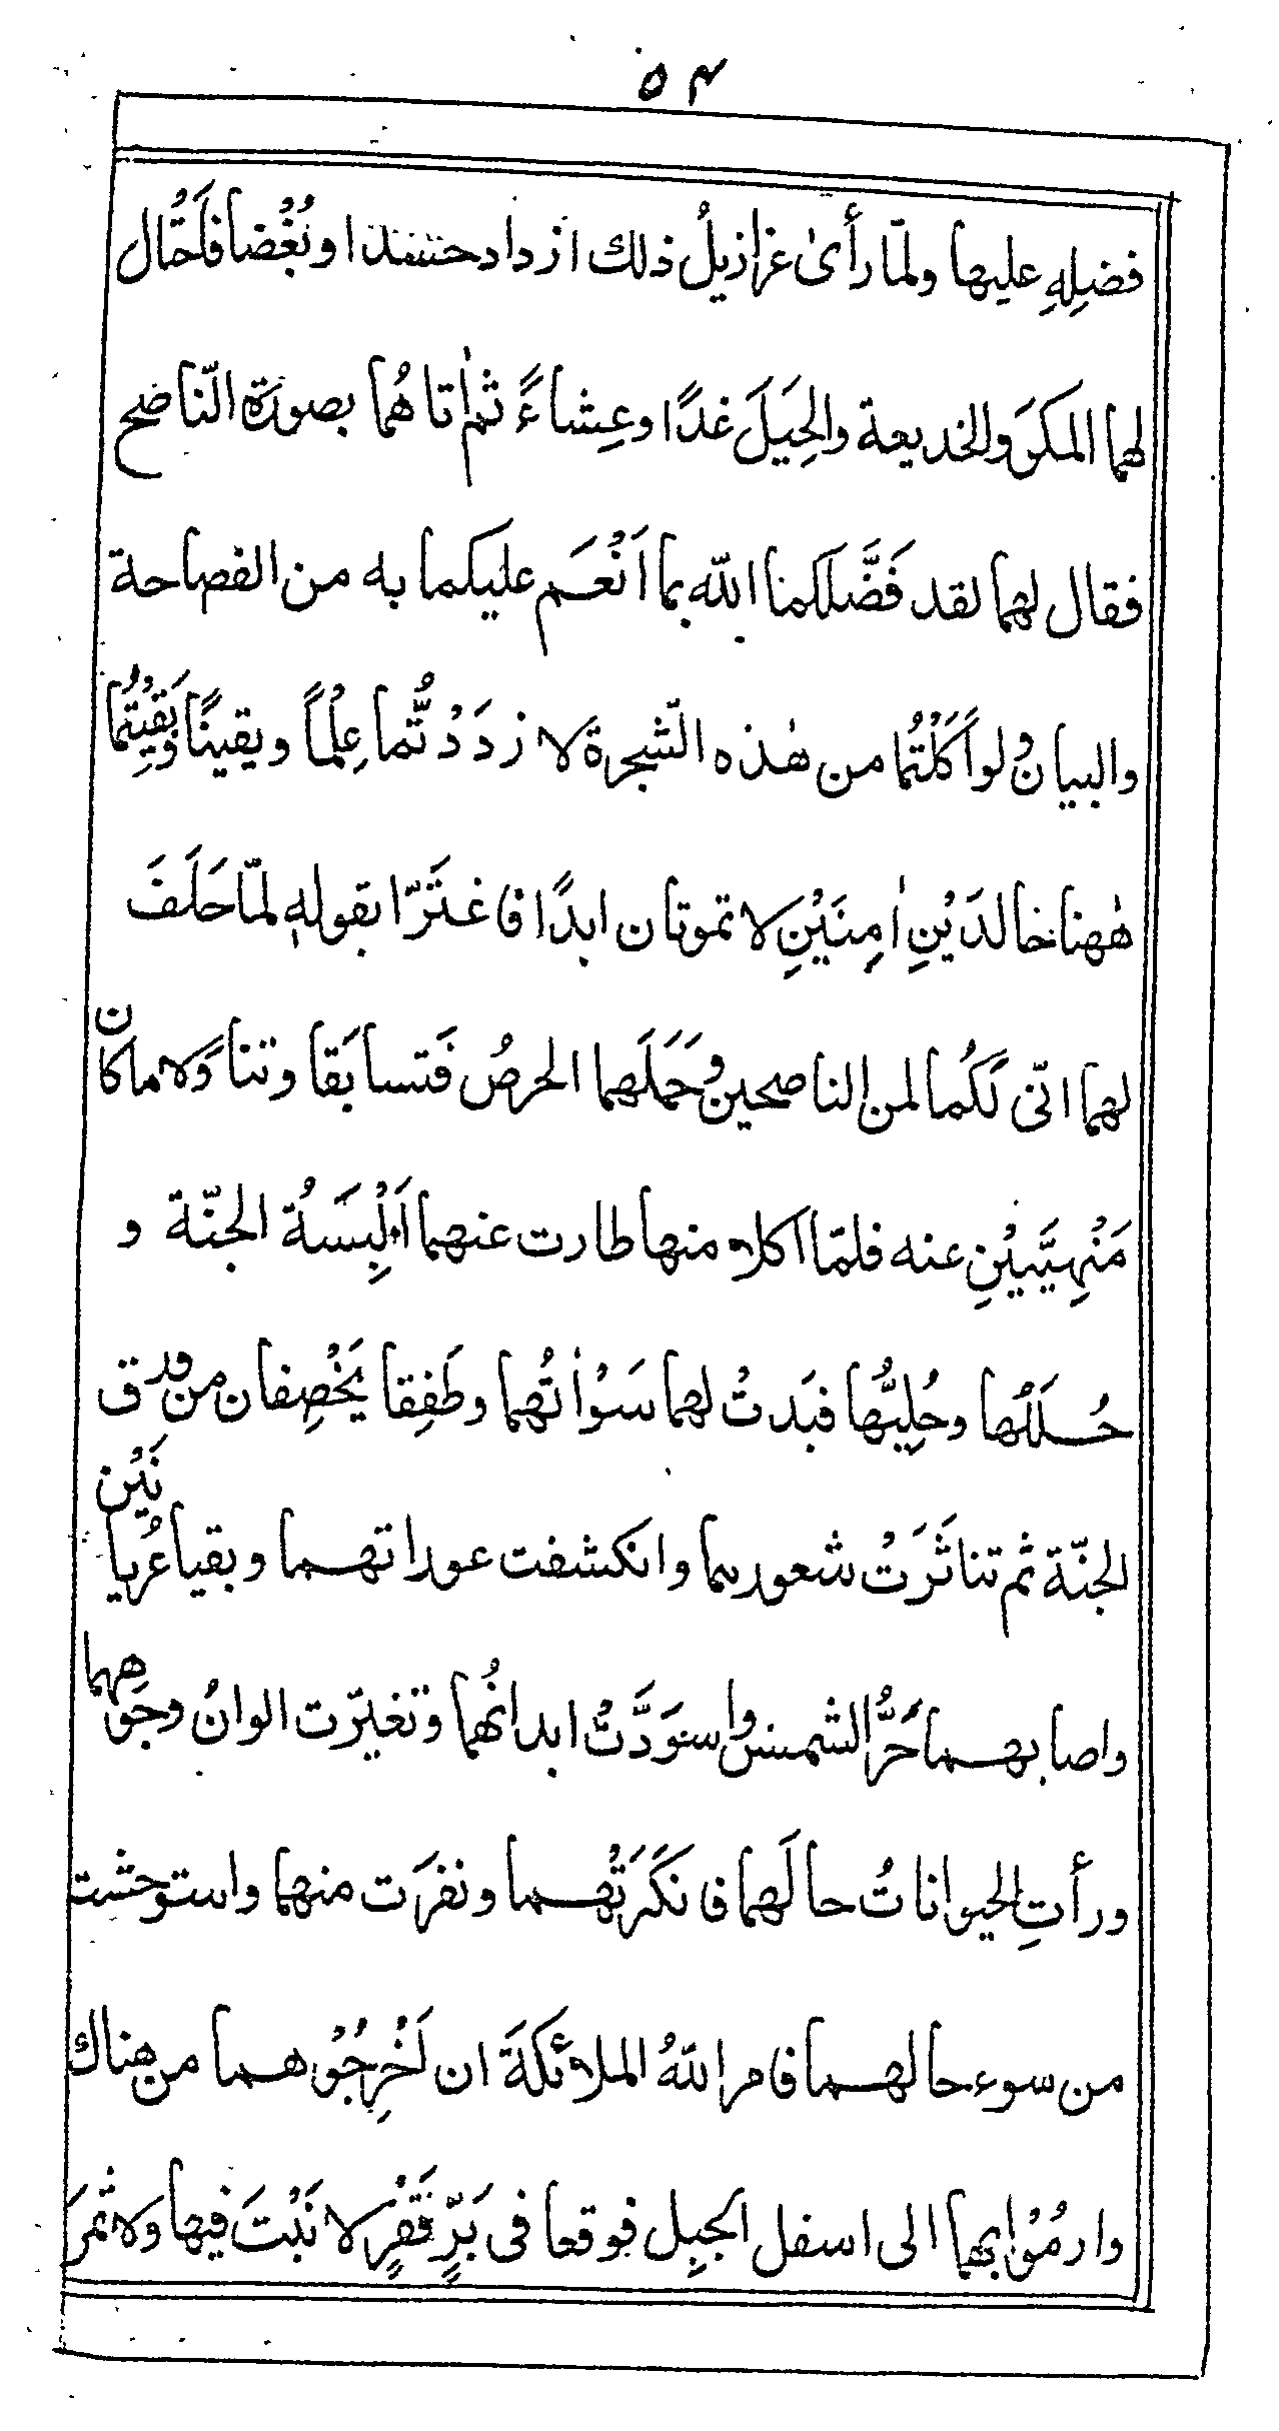 ٥٣
فضلِهِ عليها ولمّا رأىٰ عزازيلُ ذلك ازداد حسَدًا وبُغْضًا فاَحْتال
لهما المكرَ والخديعة والحِيَلَ غدًا وعِشاءً ثم اٰتاهُما بصورة النّاصح
فقال لهما لقد فَضَّلكما الله بما اَنْعَم عليكما به من الفصاحة
والبيان ولو اَكَلْتُما من هٰذه الشّجرة لازدَدْتُّما عِلْماً ويقينًا وبَقِيْتُما
هٰهنا خالدَيْنِ اٰمِنَيْنِ لا تموتان ابدًا فاغتَرّا بقوله لمّا حَلَفَ
لهما انّى لَكُما لمن الناصحين وحَمَلَهما الحرصُ فَتسابَقا وتناوَلا ما كان
مَنْهِيَّيْنِ عنه فلمّا اكلا منها طارت عنهما اَلْبِسَةُ الجنّة و
حُلَلُها وحُلِيُّها فبَدتْ لهما سَوْاٰتُهما وطَفِقا يَخْصِفان من ورق
الجنّة ثم تناثَرَتْ شعورهما وانكشفت عوراتهما وبقيا عُريانَيْن
واصابهما حَرُّ الشمس واسوَدَّتْ ابدانُهما وتغيّرت الوانُ وجوههما
ورأتِ الحيواناتُ حالَهما فانكَرَتْهما ونفرَت منهما واستوحشت
من سوء حالهما فامر اللهُ الملائكةَ ان اَخْرِجُوْهما من هناك
وارمُوْا بهما الى اسفل الجبلِ فوقعا فى بَرٍّ قَفْرٍ لا نَبْتَ فيها ولا ثمرَ